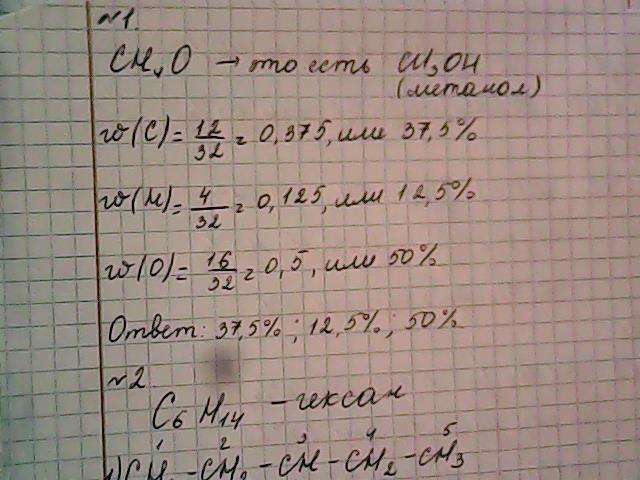 №1.
CH₄O → то есть CH₃OH
(метанол)
w(C) = 12/32 = 0,375, или 37,5%
w(H) = 4/32 = 0,125, или 12,5%
w(O) = 16/32 = 0,5, или 50%
Ответ: 37,5%; 12,5%; 50%
№2.
C₆H₁₄ – гексан
1 2 3 4 5
1) CH – CH₂ – CH – CH₂ – CH₃